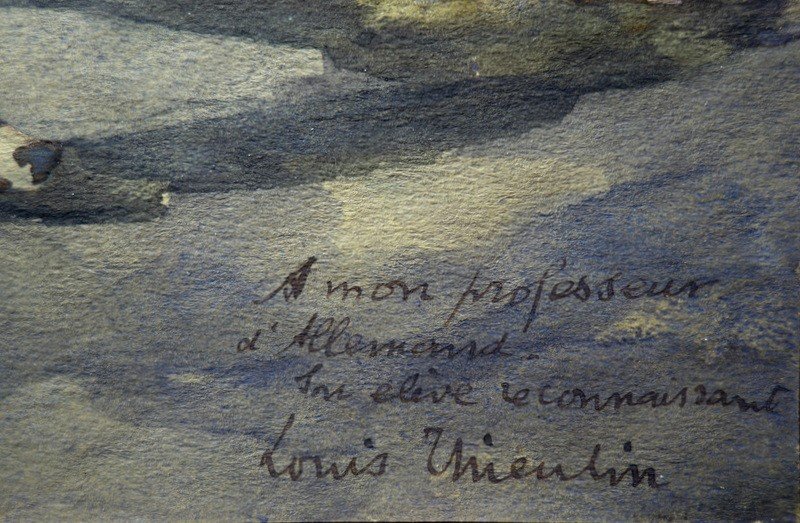 A mon professeur
d'Allemand.
Un elève reconnaissant
Louis Thieulin